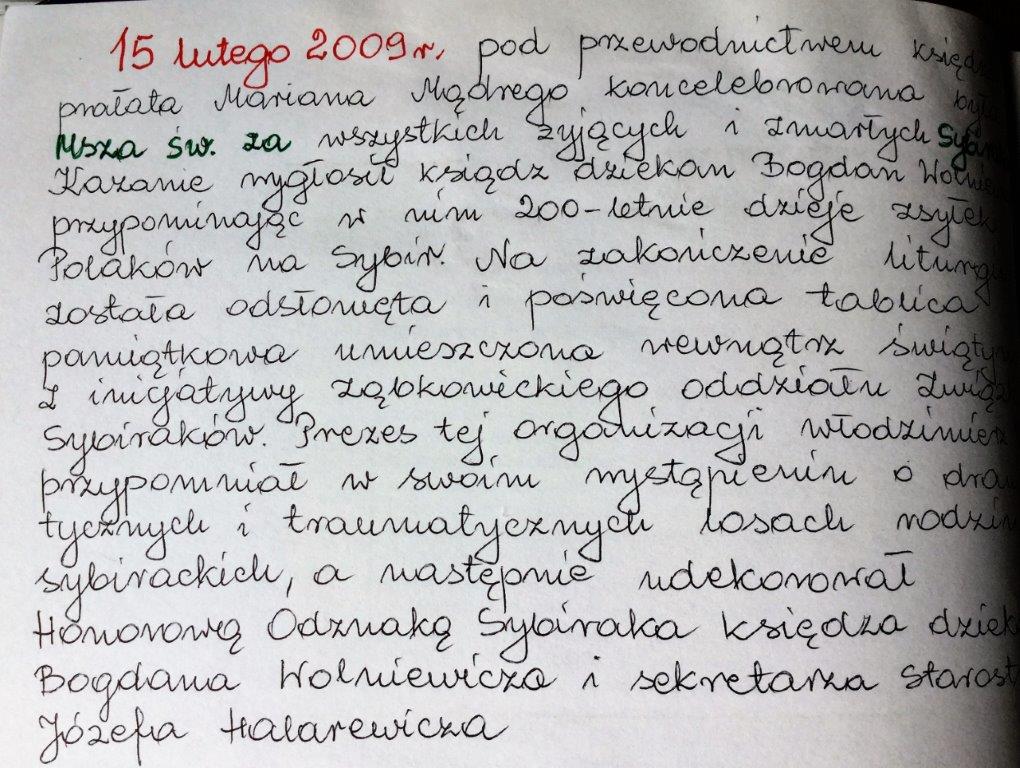 15 lutego 2009 r. pod przewodnictwem księdz
prałata Mariana Mądrego koncelebrowana była
Msza św. za wszystkich żyjących i zmarłych
Kazanie wygłosił ksiądz dziekan Bogdan Wolniew
przypominając w nim 200-letnie dzieje zsyłek
Polaków na Sybir. Na zakończenie liturgi
została odsłonięta i poświęcona tablica
pamiątkowa umieszczona wewnątrz świąty
z inicjatywy ząbkowickiego oddziału Związ
Sybiraków. Prezes tej organizacji Włodzimierz
przypomniał w swoim wystąpieniu o dra
tycznych i traumatycznych losach rodzin
sybirackich, a następnie udekorował
Honorową Odznaką Sybiraka księdza dziek
Bogdana Wolniewicza i sekretarza Starost
Józefa Halarewicza